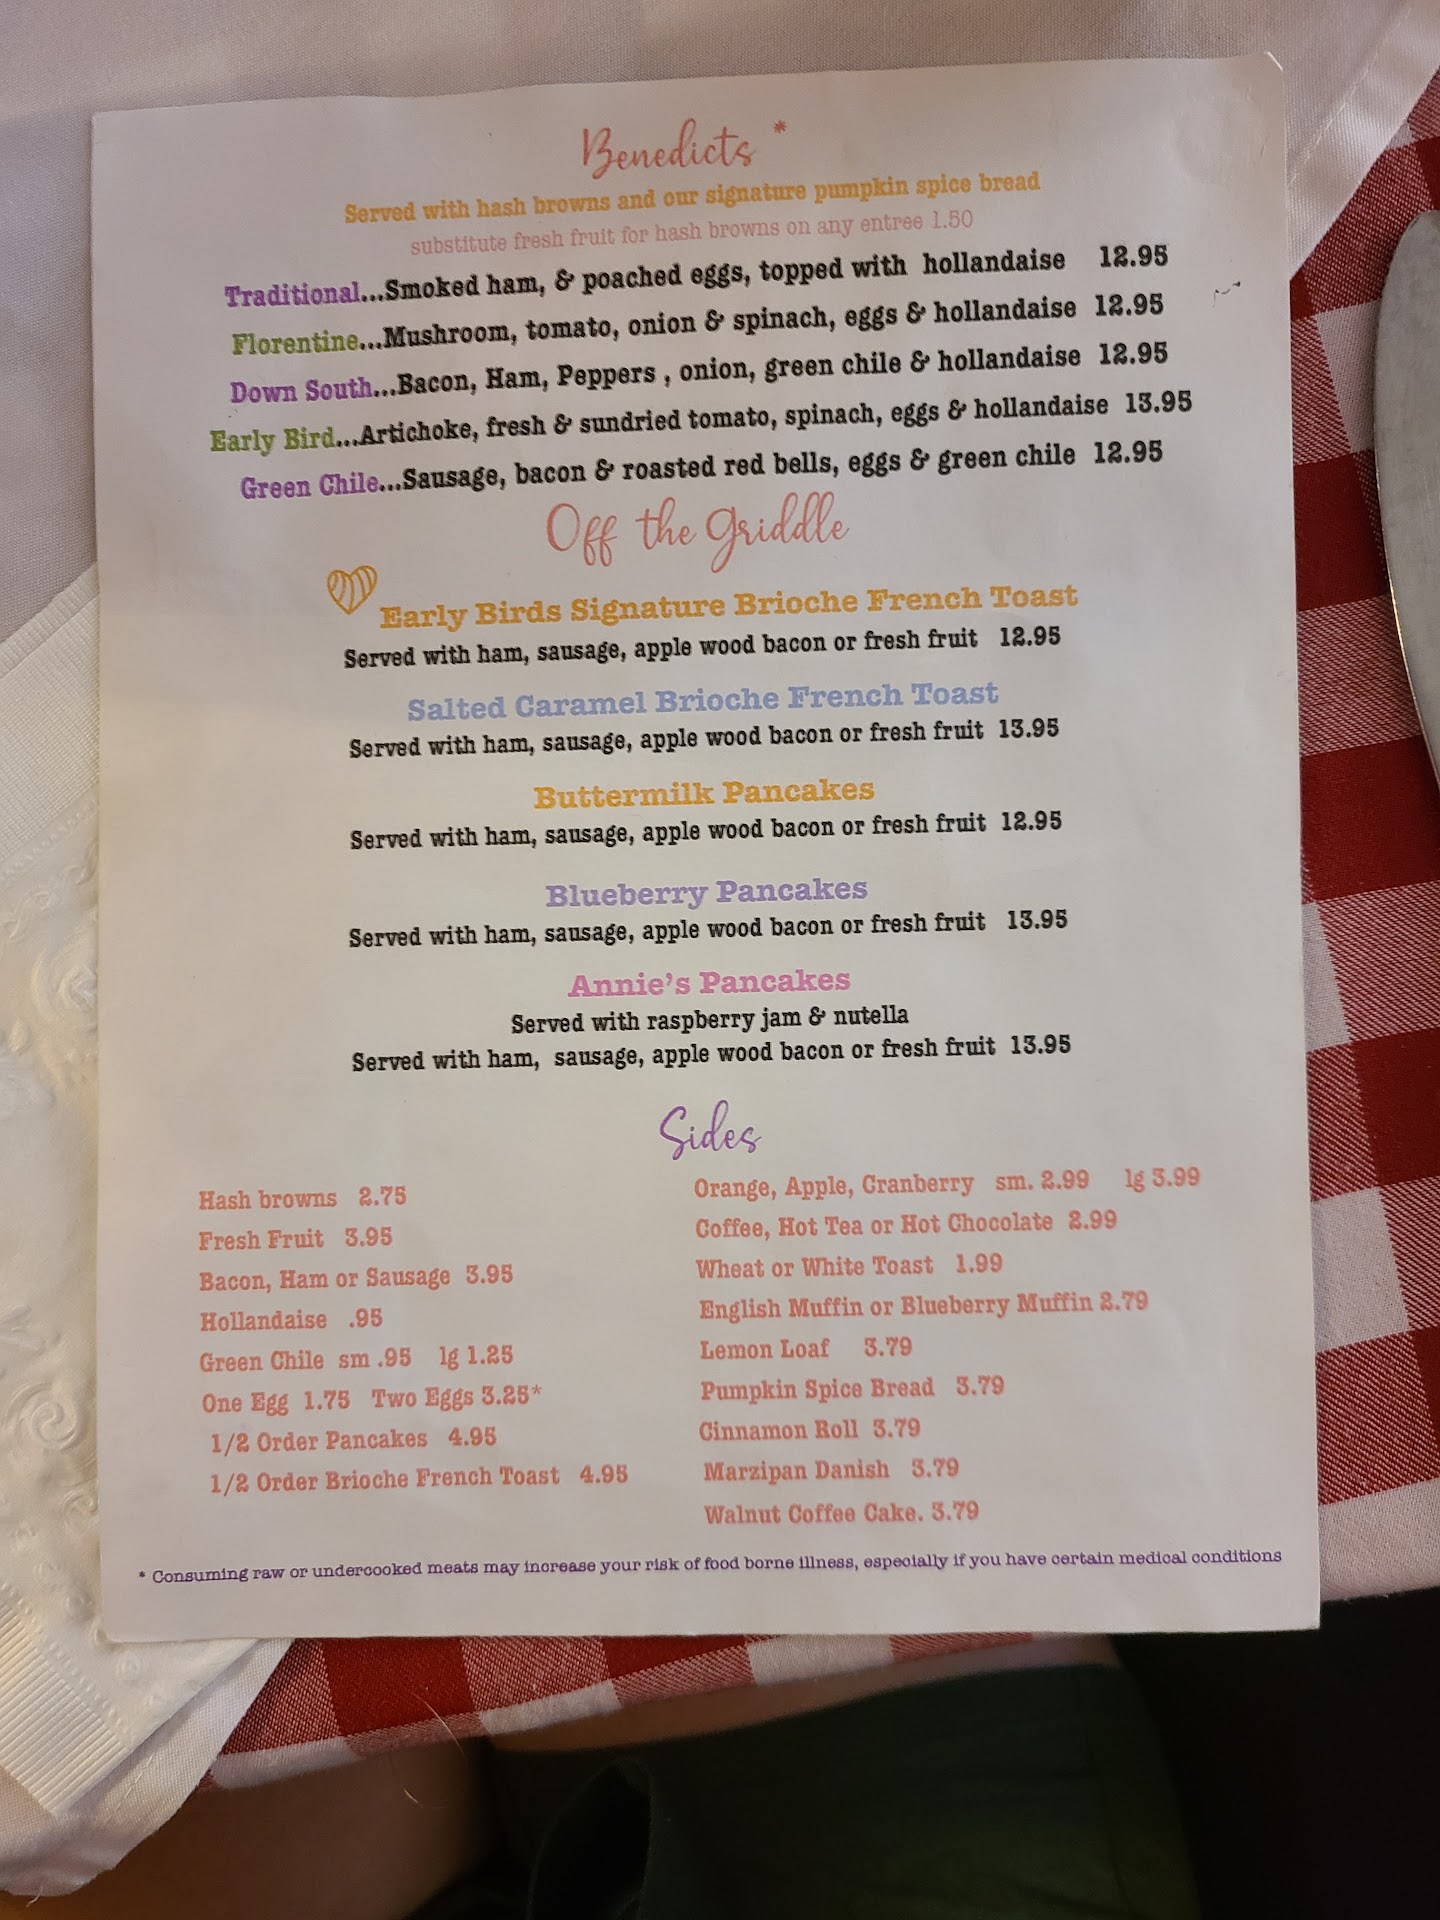 Benedicts *
Served with hash browns and our signature pumpkin spice bread
substitute fresh fruit for hash browns on any entree 1.50
Traditional...Smoked ham, & poached eggs, topped with hollandaise 12.95
Florentine...Mushroom, tomato, onion & spinach, eggs & hollandaise 12.95
Down South...Bacon, Ham, Peppers , onion, green chile & hollandaise 12.95
Early Bird...Artichoke, fresh & sundried tomato, spinach, eggs & hollandaise 13.95
Green Chile...Sausage, bacon & roasted red bells, eggs & green chile 12.95
Off the Griddle
Early Birds Signature Brioche French Toast
Served with ham, sausage, apple wood bacon or fresh fruit 12.95
Salted Caramel Brioche French Toast
Served with ham, sausage, apple wood bacon or fresh fruit 13.95
Buttermilk Pancakes
Served with ham, sausage, apple wood bacon or fresh fruit 12.95
Blueberry Pancakes
Served with ham, sausage, apple wood bacon or fresh fruit 13.95
Annie's Pancakes
Served with raspberry jam & nutella
Served with ham, sausage, apple wood bacon or fresh fruit 13.95
Sides
Hash browns 2.75
Fresh Fruit 3.95
Bacon, Ham or Sausage 3.95
Hollandaise .95
Green Chile sm .95 lg 1.25
One Egg 1.75 Two Eggs 3.25*
1/2 Order Pancakes 4.95
1/2 Order Brioche French Toast 4.95
Orange, Apple, Cranberry sm. 2.99 lg 3.99
Coffee, Hot Tea or Hot Chocolate 2.99
Wheat or White Toast 1.99
English Muffin or Blueberry Muffin 2.79
Lemon Loaf 3.79
Pumpkin Spice Bread 3.79
Cinnamon Roll 3.79
Marzipan Danish 3.79
Walnut Coffee Cake. 3.79
* Consuming raw or undercooked meats may increase your risk of food borne illness, especially if you have certain medical conditions